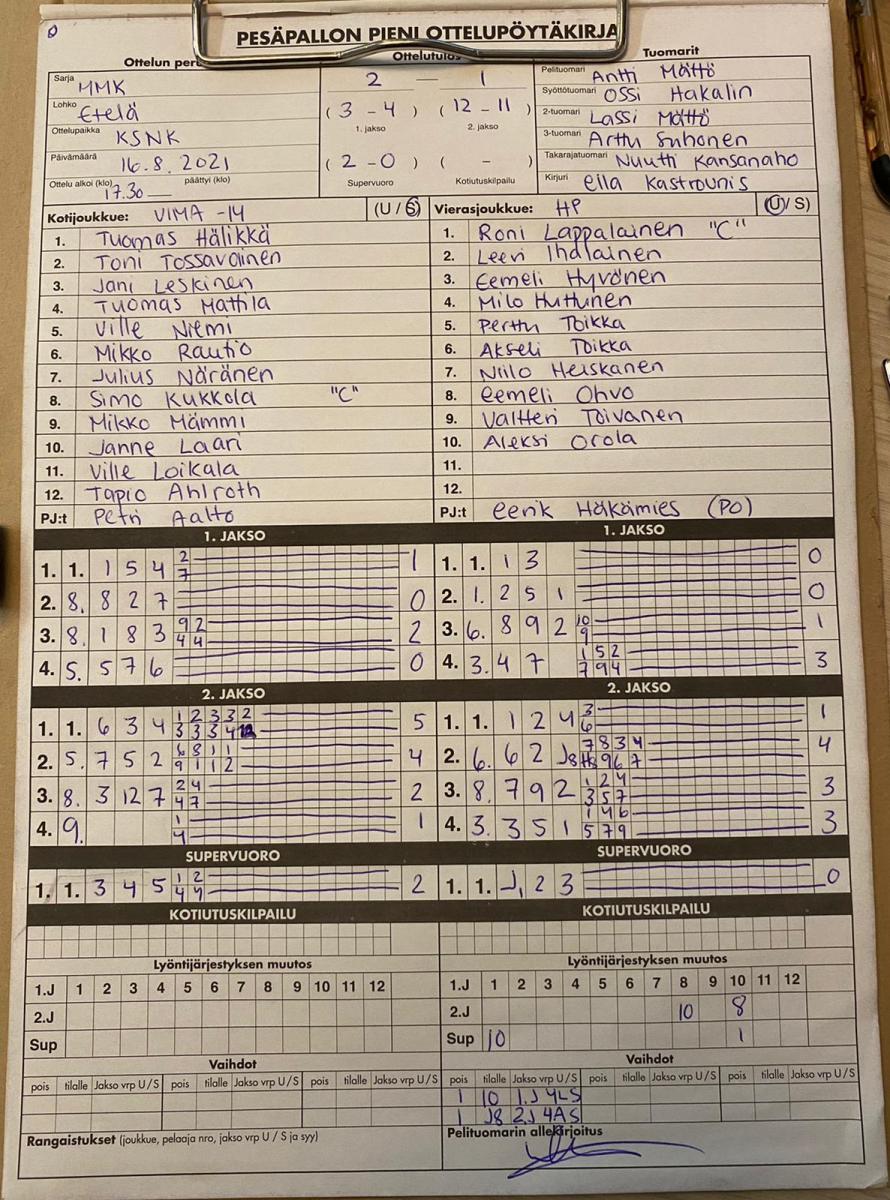 PESÄPALLON PIENI OTTELUPÖYTÄKIRJA
Ottelun per
Ottelutulos
Tuomarit
Sarja MMK
2 — 1
Pelituomari Antti Mättö
Lohko Etelä
(3 - 4) (12 - 11)
Syöttötuomari Ossi Hakalin
1. jakso 2. jakso
2-tuomari Lassi Mättö
Ottelupaikka KSNK
3-tuomari Arttu Suhonen
Päivämäärä 16.8.2021
(2 - 0) ( - )
Takarajatuomari Nuutti Kansanaho
Ottelu alkoi (klo) 17.30 — päättyi (klo)
Supervuoro Kotiutuskilpailu
Kirjuri Ella Kastrounis
Kotijoukkue: VIMA -14 (U / S)
Vierasjoukkue: HP (U / S)
1. Tuomas Hälikkä
1. Roni Lappalainen "C"
2. Toni Tossavainen
2. Leevi Ihalainen
3. Jani Leskinen
3. Eemeli Hyvönen
4. Tuomas Mattila
4. Milo Huttunen
5. Ville Niemi
5. Perttu Toikka
6. Mikko Rautio
6. Akseli Toikka
7. Julius Näränen
7. Niilo Heiskanen
8. Simo Kukkola "C"
8. Eemeli Ohvo
9. Mikko Mämmi
9. Valtteri Toivanen
10. Janne Laari
10. Aleksi Orola
11. Ville Loikala
11.
12. Tapio Ahlroth
12.
PJ:t Petri Aalto
PJ:t Eerik Häkämies (PO)
1. JAKSO
1. JAKSO
1. 1. 1 5 4 2 7 1
1. 1. 1 3 0
2. 8. 8 2 7 0
2. 1. 2 5 1 0
3. 8. 1 8 3 9 2 4 4 2
3. 6. 8 9 2 10 9 1
4. 5. 5 7 6 0
4. 3. 4 7 1 5 2 7 9 4 3
2. JAKSO
2. JAKSO
1. 1. 6 3 4 1 2 3 3 2 3 3 3 4 5
1. 1. 1 2 4 3 6 1
2. 5. 7 5 2 6 8 1 1 9 1 1 2 4
2. 6. 6 2 J8 7 8 3 4 9 6 7 4
3. 8. 3 12 7 2 4 4 7 2
3. 8. 7 9 2 1 2 4 3 5 7 3
4. 9. 1 4 1
4. 3. 3 5 1 1 4 6 5 7 9 3
SUPERVUORO
SUPERVUORO
1. 1. 3 4 5 1 2 4 4 2
1. 1. J, 2 3 0
KOTIUTUSKILPAILU
KOTIUTUSKILPAILU
Lyöntijärjestyksen muutos
Lyöntijärjestyksen muutos
1.J 1 2 3 4 5 6 7 8 9 10 11 12
1.J 1 2 3 4 5 6 7 8 9 10 11 12
2.J
2.J 10 8
Sup
Sup 10 1
Vaihdot
Vaihdot
pois tilalle Jakso vrp U/S pois tilalle Jakso vrp U/S pois tilalle Jakso vrp U/S
pois tilalle Jakso vrp U/S pois tilalle Jakso vrp U/S pois tilalle Jakso vrp U/S
1 10 1.J 4LS
1 J8 2J 4AS
Rangaistukset (joukkue, pelaaja nro, jakso vrp U / S ja syy)
Pelituomarin allekirjoitus